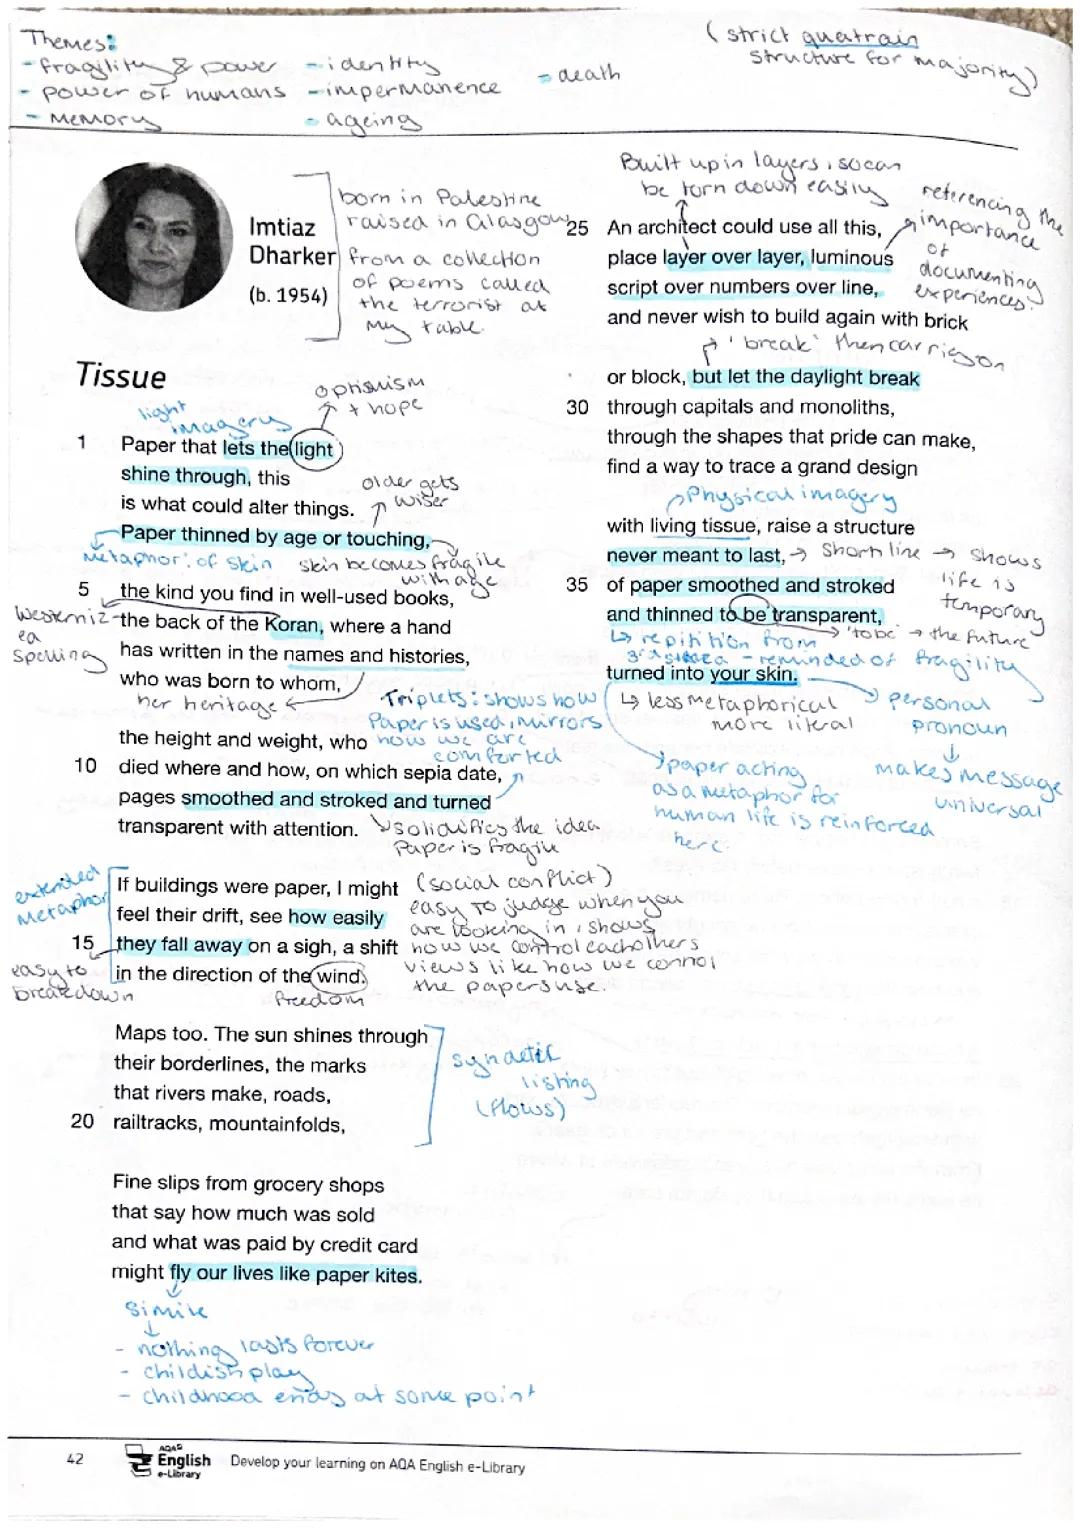 Themes:
- fragility & power
- power of humans
- Memory
- identity
- impermanence
- ageing
- death
(strict quatrain
structure for majority)
Imtiaz
Dharker
(b. 1954)
born in Palestine
raised in Glasgow
from a collection
of poems called
the terrorist at
my table.
Tissue
light
imagery
optimism
+ hope
1 Paper that lets the light
shine through, this
is what could alter things.
older gets
wiser
Paper thinned by age or touching,
Metaphor: of skin
skin becomes fragile
with age
5 the kind you find in well-used books,
the back of the Koran, where a hand
has written in the names and histories,
who was born to whom,
Westerniz
ed
spelling
her heritage
Triplets: shows how
Paper is used, mirrors
how we are
comforted
the height and weight, who
10 died where and how, on which sepia date,
pages smoothed and stroked and turned
transparent with attention.
solidifies the idea
Paper is fragile
extended
Metaphor
If buildings were paper, I might
feel their drift, see how easily
15 they fall away on a sigh, a shift
in the direction of the wind.
easy to
breakdown
freedom
(social conflict)
easy to judge when you
are looking in, shows
how we control eachothers
views like how we control
the papers use.
Maps too. The sun shines through
their borderlines, the marks
that rivers make, roads,
20 railtracks, mountainfolds,
syndetic
listing
(flows)
Fine slips from grocery shops
that say how much was sold
and what was paid by credit card
might fly our lives like paper kites.
Simile
- nothing lasts forever
- childish play
- childhood ends at some point
Built up in layers, so can
be torn down easily
referencing the
importance
of
documenting
experiences.
25 An architect could use all this,
place layer over layer, luminous
script over numbers over line,
and never wish to build again with brick
'break' then carries on
or block, but let the daylight break
30 through capitals and monoliths,
through the shapes that pride can make,
find a way to trace a grand design
Physical imagery
with living tissue, raise a structure
never meant to last,
→ Short line → shows
life is
temporary
35 of paper smoothed and stroked
and thinned to be transparent,
'to be' → the future
repitition from
- reminded of fragility
turned into your skin.
less metaphorical
more literal
personal
pronoun
makes message
universal
paper acting
as a metaphor for
human life is reinforced
here.
42
AQA
English
e-Library
Develop your learning on AQA English e-Library